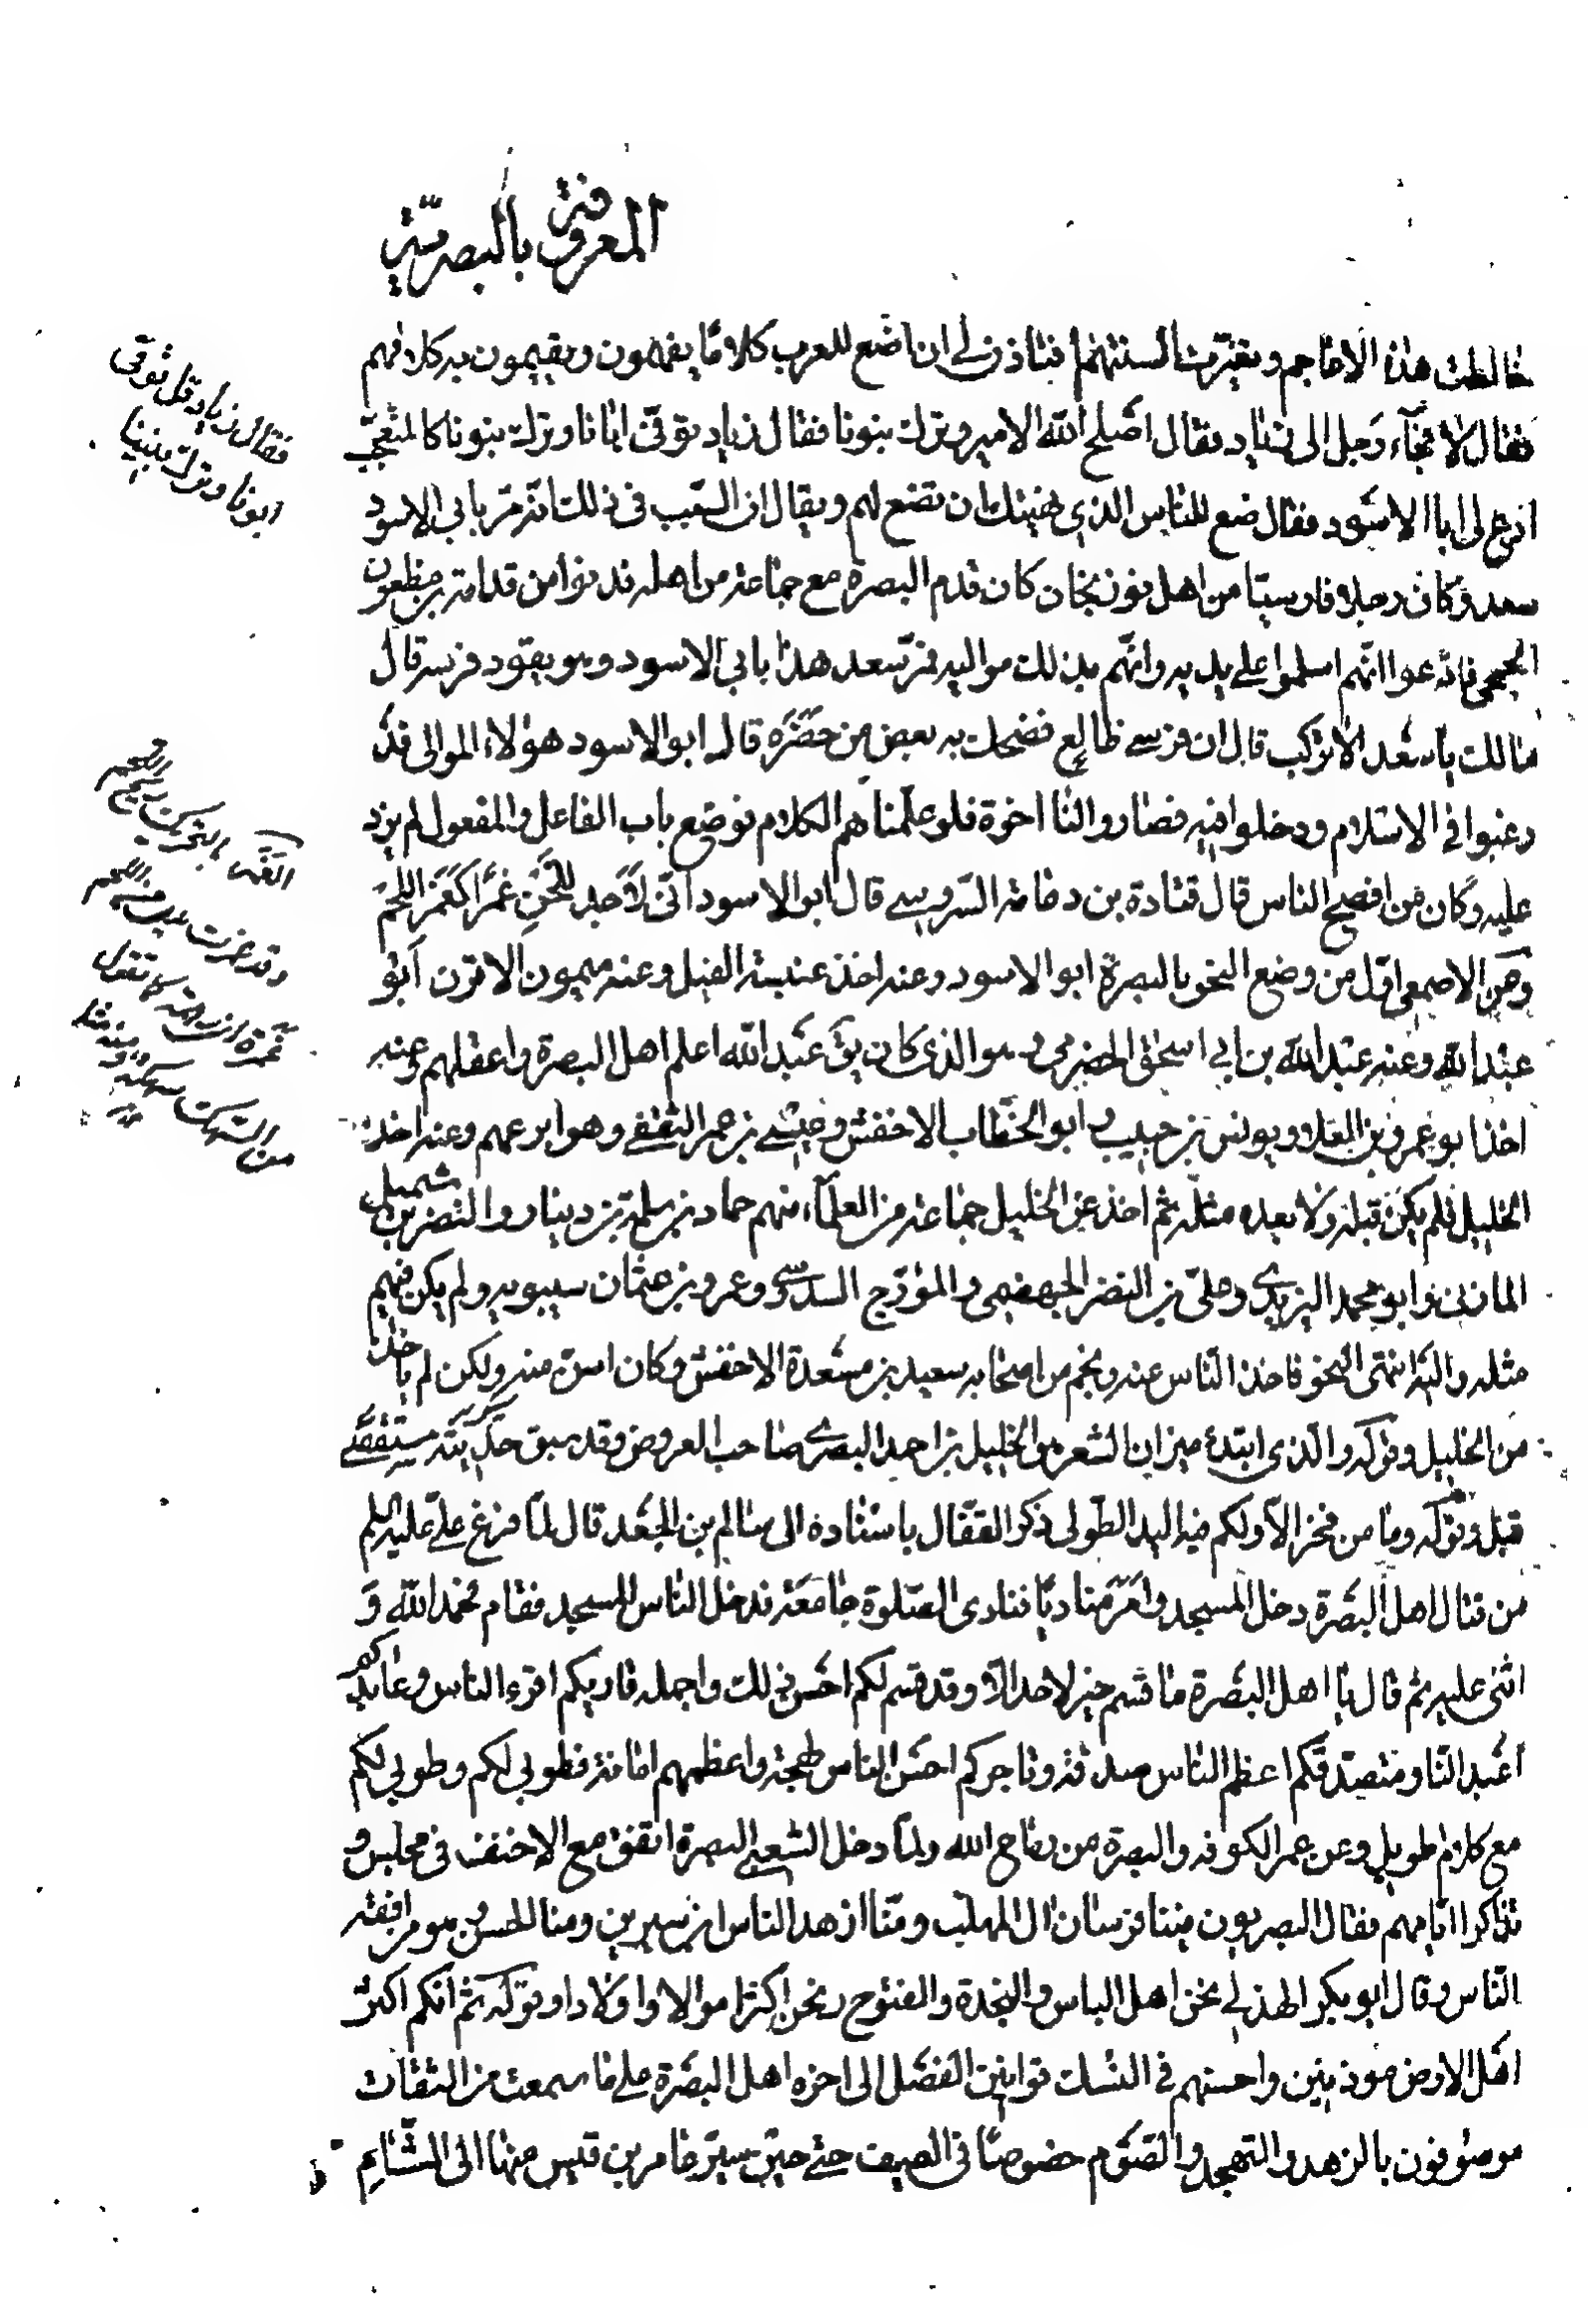 المعروفة بالبصرية
خالطت هذه الاعاجم وتغيرت السنتهم افتاذن لي ان اضع للعرب كلاما يفهمون ويقيمون به كلامهم
فقال لا فجآء رجل الى زياد فقال اصلح الله الامير وترك بنونا فقال زياد توفى ابانا وترك بنونا كالمتعجب
ادع لي ابا الاسود فقال ضع للناس الذي نهيتك ان تضع لهم ويقال ان السبب في ذلك انه مر بابي الاسود
سعد وكان رجلا فارسيا من اهل نوبنجان كان قدم البصرة مع جماعة من اهله فدنوا من قدامة بن مظعون
الجمحي فادعوا انهم اسلموا على يديه وانهم بذلك مواليه فمر سعد هذا بابي الاسود وهو يقود فرسه قال
مالك يا سعد الا تركب قال ان فرسي ظالع فضحك به بعض من حضره قال ابو الاسود هولاء الموالي قد
رغبوا في الاسلام ودخلوا فيه فصاروا لنا اخوة فلو علمناهم الكلام فوضع باب الفاعل والمفعول لم يزد
عليه وكان من افصح الناس قال قتادة بن دعامة السدوسي قال ابو الاسود اني لاجد للحن غمرا كغمر اللحم
وعن الاصمعي اول من وضع النحو بالبصرة ابو الاسود وعنه اخذ عنبسة الفيل وعنه ميمون الاقرن ابو
عبدالله وعنه عبدالله بن ابي اسحق الحضرمي وهو الذي كان يق عبدالله اعلم اهل البصرة واعقلهم وعنه
اخذ ابو عمرو بن العلا ويونس بن حبيب وابو الخطاب الاخفش وعيسى بن عمر الثقفي وهو ابرعهم وعنه اخذ
الخليل فلم يكن قبله ولا بعده مثله ثم اخذ عن الخليل جماعة من العلمآء منهم حماد بن سلمة بن دينار والنضر بن شميل
المازني وابو محمد اليزيدي وعلي بن النضر الجهضمي والمؤرج السدوسي وعمرو بن عثمان سيبويه ولم يكن فيهم
مثله واليه انتهى النحو فاخذ الناس عنه ونجم من اصحابه سعيد بن مسعدة الاخفش وكان اسن منه ولكن لم ياخذ
من الخليل وقوله والذي ابتدء ميزان الشعر هو الخليل بن احمد البصري صاحب العروض وقد سبق حديثه مستقصى
قبل وقوله وما من فخر الا ولكم فيه اليد الطولى ذكر القفال باسناده الى سالم بن الجعد قال لما فرغ علي عليه السلم
من قتال اهل البصرة دخل المسجد وامر مناديا فنادى الصلوة جامعة فدخل الناس المسجد فقام فحمد الله و
اثنى عليه ثم قال يا اهل البصرة ما قسم خير لاحد الا وقد قسم لكم احسن ذلك واجمله قاريكم اقرء الناس وعابدكم
اعبد الناس ومتصدقكم اعظم الناس صدقة وتاجركم احسن الناس لهجة واعظمهم امانة فطوبى لكم وطوبى لكم
مع كلام طويل وعن عمر الكوفه والبصرة من رماح الله ولما دخل الشعبي البصرة اتفق مع الاحنف في مجلس و
تذاكرا ايامهم فقال البصريون منا فرسان ال المهلب ومنا ازهد الناس ابن سيرين ومنا الحسن وهو من افقه
الناس وقال ابو بكر الهذلي نحن اهل الباس والنجدة والفتوح ونحن اكثر اموالا واولادا وقوله ثم انكم اكثر
اهل الارض موذنين واحسنهم في النسك قوانين الفضل الى اخره اهل البصرة على ما سمعت من الثقات
موصوفون بالزهد والتهجد والصوم خصوصا في الصيف حتى حين سير عامر بن قيس منها الى الشام
فقال زياد قل توفى
ابونا وترك بنينا
الغمر بالتحريك ريح اللحم
وقد غمرت يدي من اللحم
غمرة اي زهمة كما تقول
من السهك سهكة ومنه منديل
الغمر